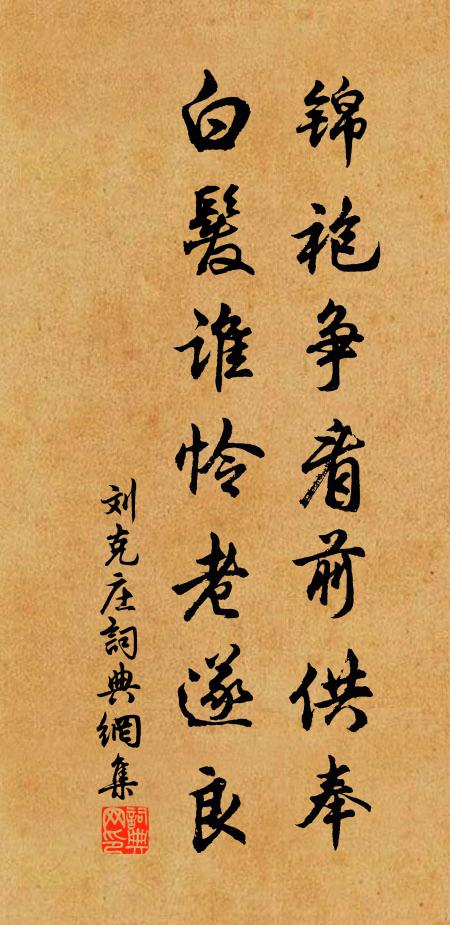 锦袍争看前供奉
白髮谁怜老遂良
刘克庄詞典網集
詞典网印